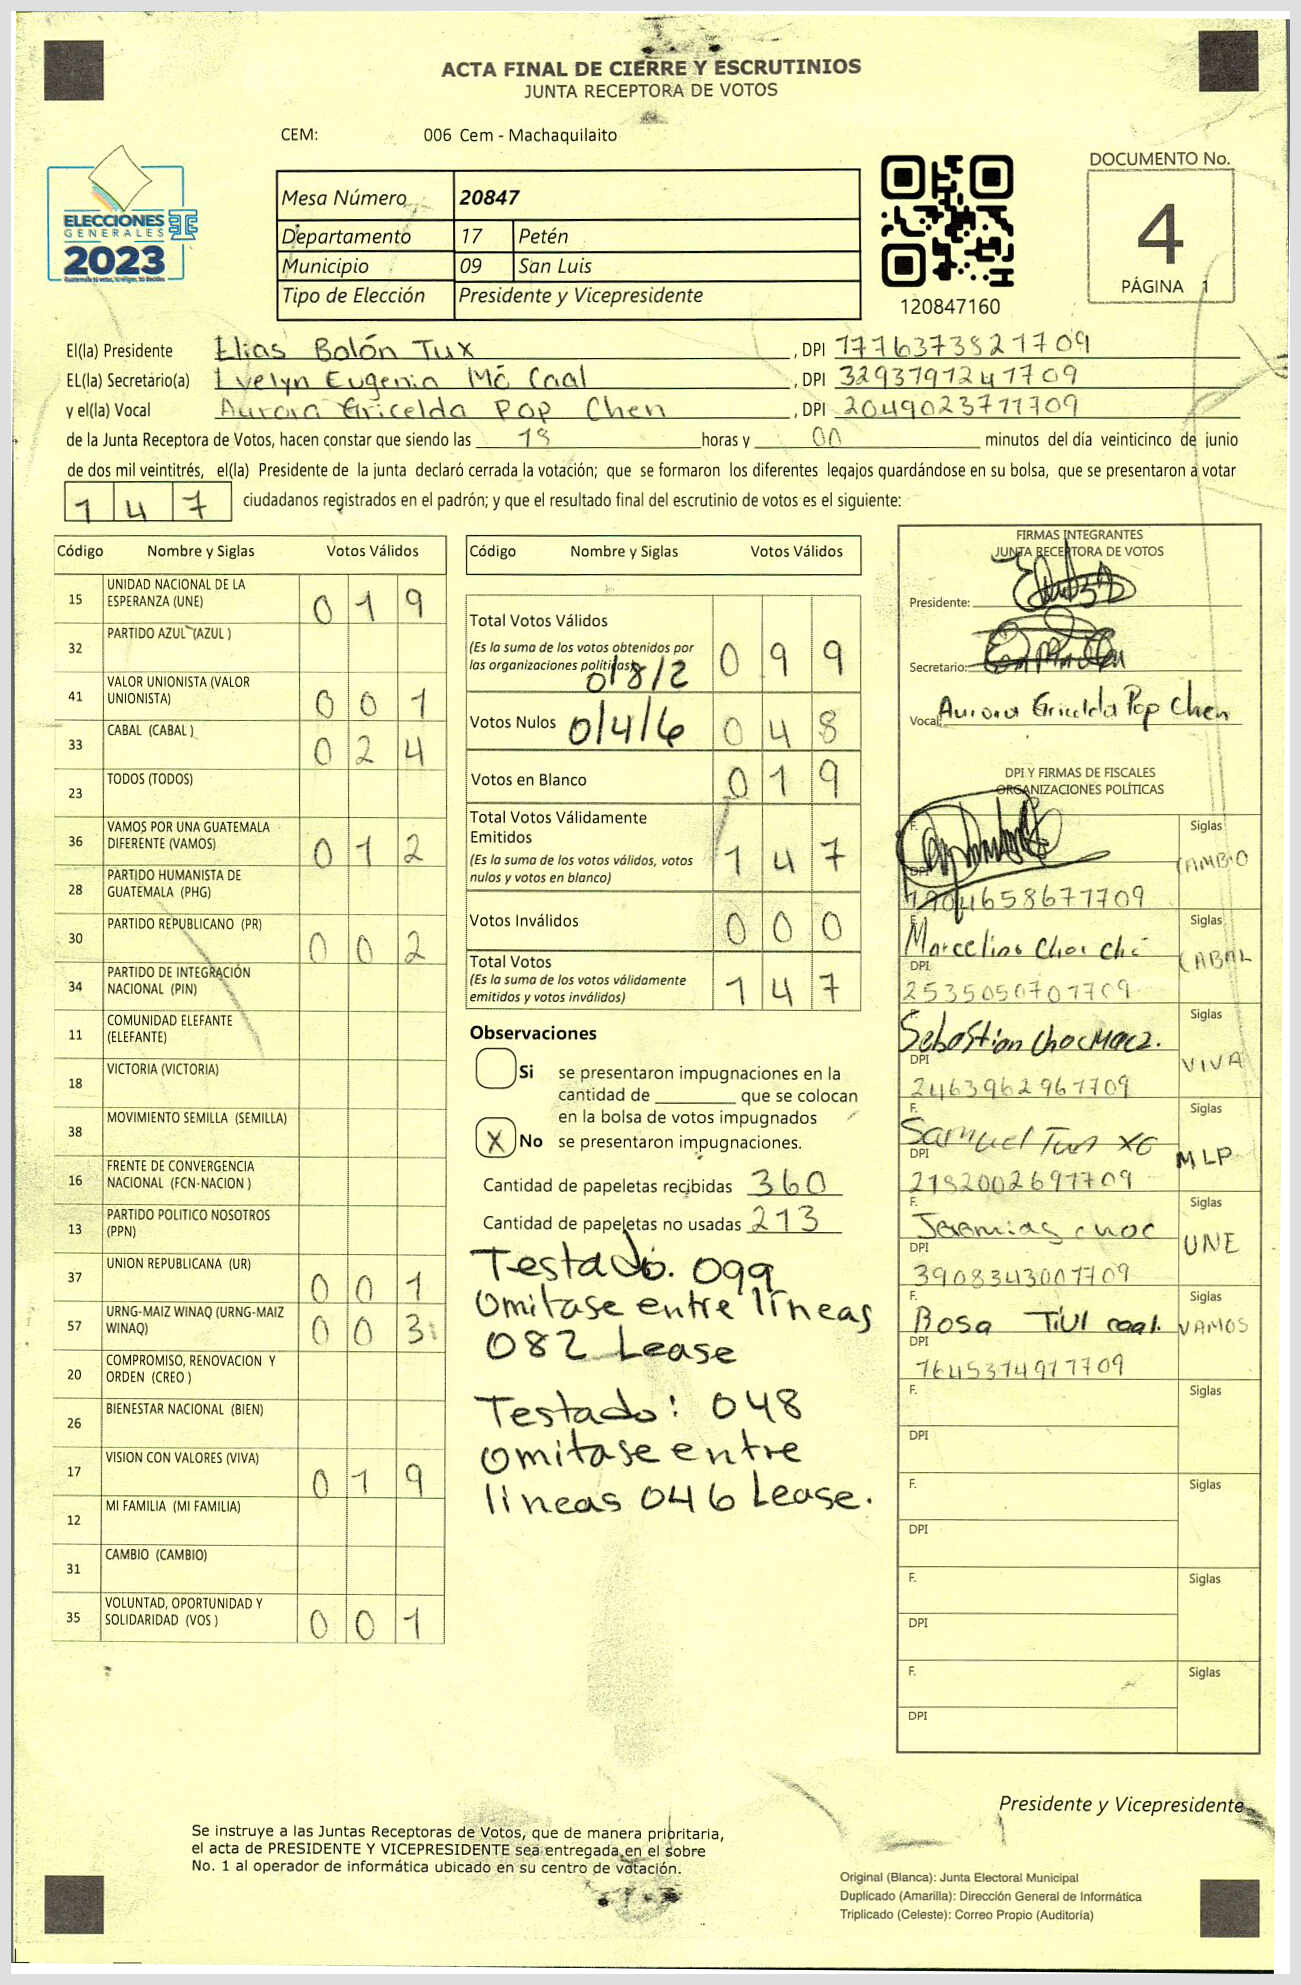 ACTA FINAL DE CIERRE Y ESCRUTINIOS
JUNTA RECEPTORA DE VOTOS
CEM: 006 Cem - Machaquilaito
ELECCIONES
GENERALES
2023
Mesa Número 20847
Departamento 17 Petén
Municipio 09 San Luis
Tipo de Elección Presidente y Vicepresidente
120847160
DOCUMENTO No.
4
PÁGINA 1
El(la) Presidente Elias Bolón Tux , DPI 1776373821709
EL(la) Secretario(a) Evelyn Eugenia Mó Caal , DPI 3293797241709
y el(la) Vocal Aurora Gricelda Pop Chen , DPI 2049023711709
de la Junta Receptora de Votos, hacen constar que siendo las 18 horas y 00 minutos del día veinticinco de junio
de dos mil veintitrés, el(la) Presidente de la junta declaró cerrada la votación; que se formaron los diferentes legajos guardándose en su bolsa, que se presentaron a votar
147 ciudadanos registrados en el padrón; y que el resultado final del escrutinio de votos es el siguiente:
Código Nombre y Siglas Votos Válidos
15 UNIDAD NACIONAL DE LA ESPERANZA (UNE) 019
32 PARTIDO AZUL (AZUL )
41 VALOR UNIONISTA (VALOR UNIONISTA) 001
33 CABAL (CABAL ) 024
23 TODOS (TODOS)
36 VAMOS POR UNA GUATEMALA DIFERENTE (VAMOS) 012
28 PARTIDO HUMANISTA DE GUATEMALA (PHG)
30 PARTIDO REPUBLICANO (PR) 002
34 PARTIDO DE INTEGRACIÓN NACIONAL (PIN)
11 COMUNIDAD ELEFANTE (ELEFANTE)
18 VICTORIA (VICTORIA)
38 MOVIMIENTO SEMILLA (SEMILLA)
16 FRENTE DE CONVERGENCIA NACIONAL (FCN-NACION )
13 PARTIDO POLITICO NOSOTROS (PPN)
37 UNION REPUBLICANA (UR) 001
57 URNG-MAIZ WINAQ (URNG-MAIZ WINAQ) 003
20 COMPROMISO, RENOVACION Y ORDEN (CREO )
26 BIENESTAR NACIONAL (BIEN)
17 VISION CON VALORES (VIVA) 019
12 MI FAMILIA (MI FAMILIA)
31 CAMBIO (CAMBIO)
35 VOLUNTAD, OPORTUNIDAD Y SOLIDARIDAD (VOS ) 001
Código Nombre y Siglas Votos Válidos
Total Votos Válidos 099
(Es la suma de los votos obtenidos por
las organizaciones políticas)
0/8/2
Votos Nulos 0/4/6 048
Votos en Blanco 019
Total Votos Válidamente
Emitidos 147
(Es la suma de los votos válidos, votos
nulos y votos en blanco)
Votos Inválidos 000
Total Votos 147
(Es la suma de los votos válidamente
emitidos y votos inválidos)
Observaciones
Si se presentaron impugnaciones en la
cantidad de ________ que se colocan
en la bolsa de votos impugnados
X No se presentaron impugnaciones.
Cantidad de papeletas recibidas 360
Cantidad de papeletas no usadas 213
Testado: 099
Omitase entre líneas
082 Lease
Testado: 048
Omitase entre
líneas 046 Lease.
FIRMAS INTEGRANTES
JUNTA RECEPTORA DE VOTOS
Presidente:
Secretario:
Vocal: Aurora Gricelda Pop Chen
DPI Y FIRMAS DE FISCALES
ORGANIZACIONES POLÍTICAS
F. Siglas CAMBIO
DPI
F. Marcelino Choc Ché Siglas CABAL
DPI 2535050701709
F. Sebastián Choc Macz. Siglas VIVA
DPI 2463962961709
F. Samuel Tux Xo Siglas MLP
DPI 2182002691709
F. Jeremias choc Siglas UNE
DPI 3908343001709
F. Rosa Tiul caal. Siglas VAMOS
DPI 1645374971709
F. Siglas
DPI
F. Siglas
DPI
F. Siglas
DPI
F. Siglas
DPI
Presidente y Vicepresidente
Se instruye a las Juntas Receptoras de Votos, que de manera prioritaria,
el acta de PRESIDENTE Y VICEPRESIDENTE sea entregada en el sobre
No. 1 al operador de informática ubicado en su centro de votación.
Original (Blanca): Junta Electoral Municipal
Duplicado (Amarilla): Dirección General de Informática
Triplicado (Celeste): Correo Propio (Auditoría)